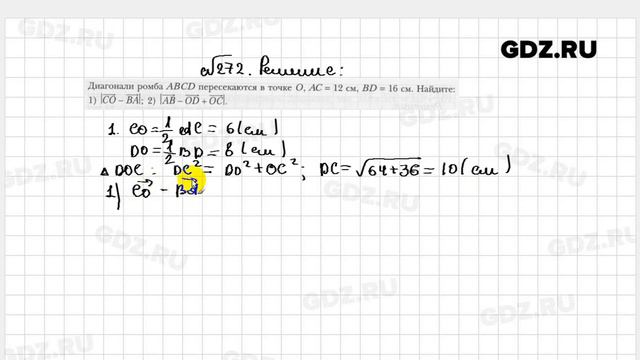 GDZ.RU
№272. Решение:
Диагонали ромба ABCD пересекаются в точке O, AC = 12 см, BD = 16 см. Найдите:
1) |CO − BA|; 2) |AB − OD + OC|.
1. CO = 1/2 AC = 6 (см)
DO = 1/2 BD = 8 (см)
△ DOC : DC² = DO² + OC²; DC = √64+36 = 10 (см)
1) CO − BA